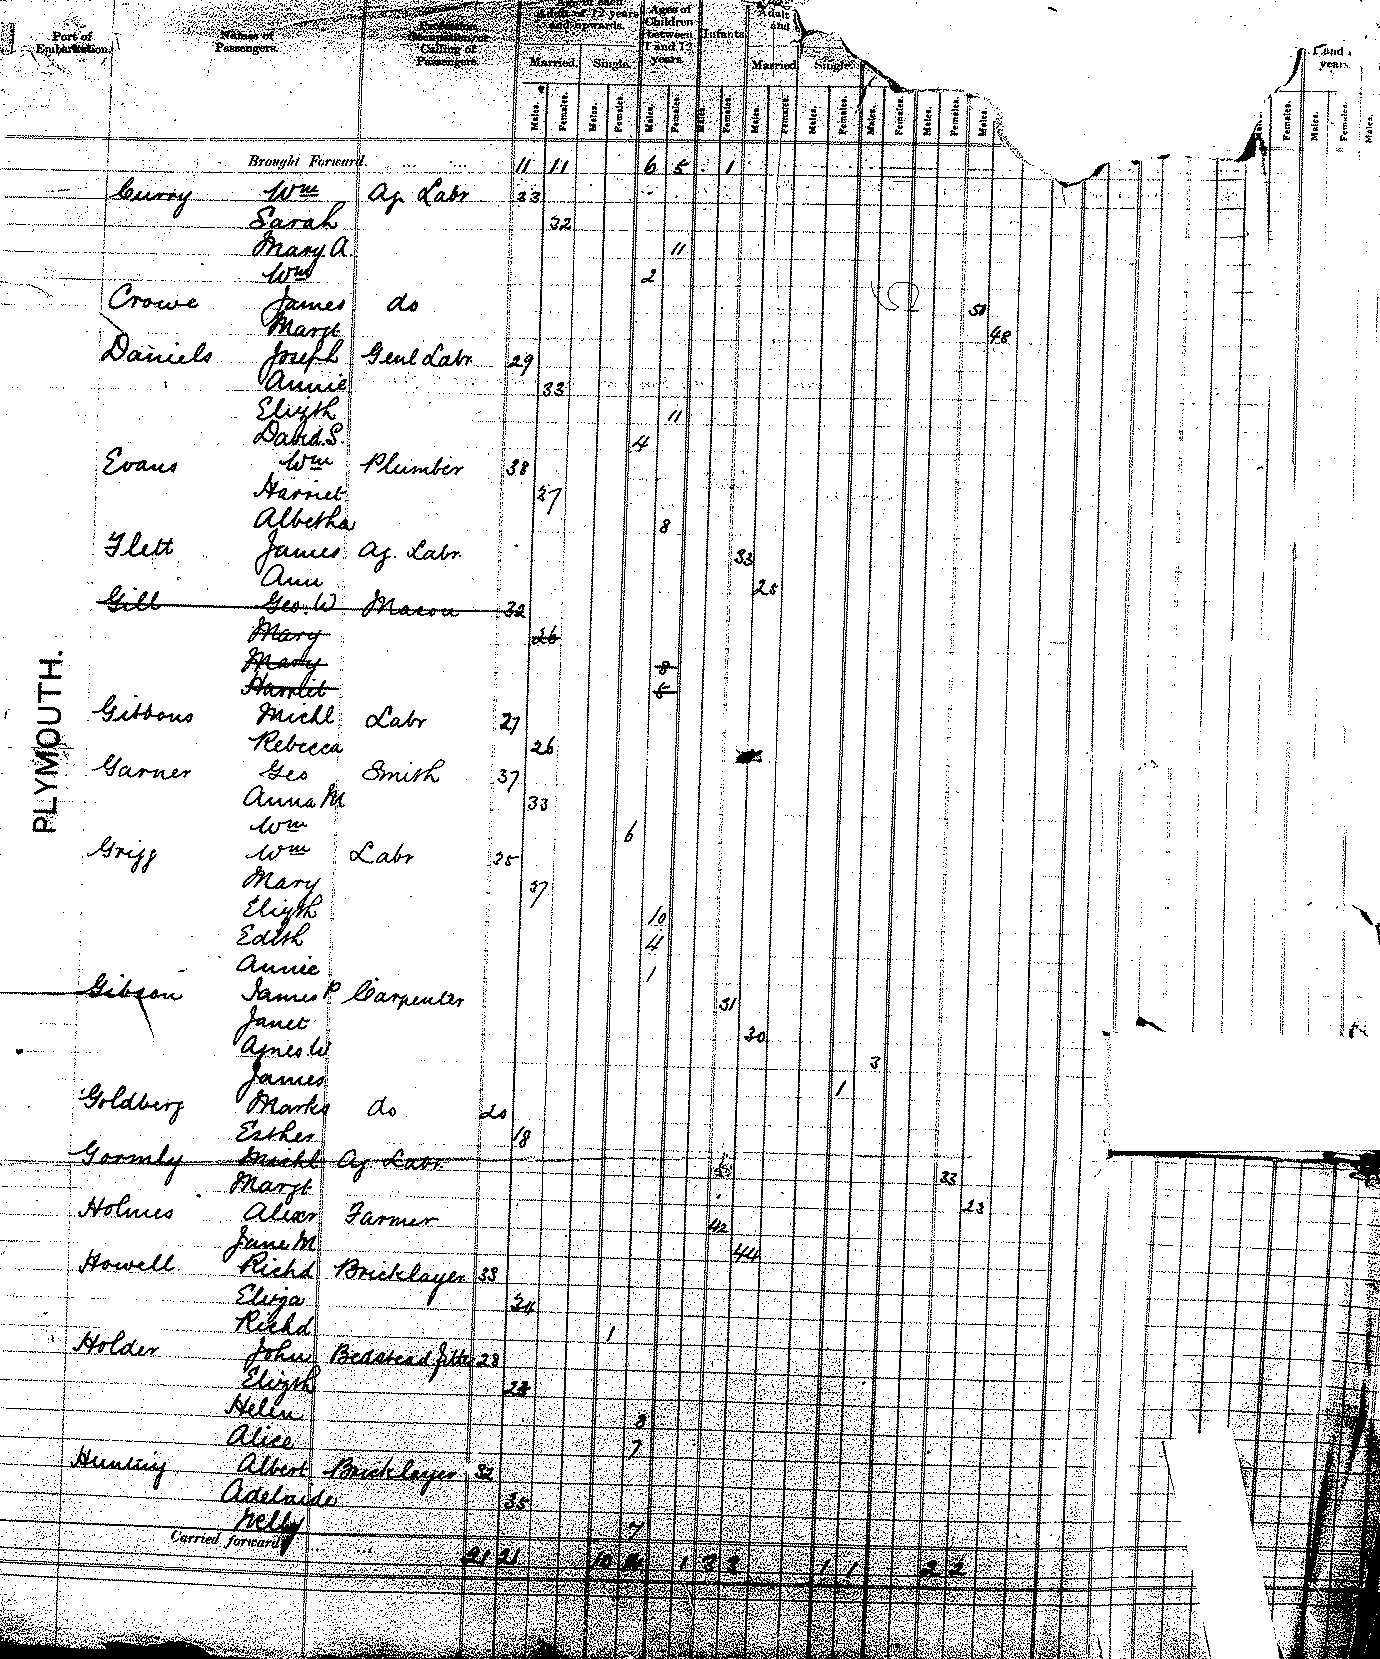 Port of Embarkation.
Names of Passengers.
Calling of Passengers.
of 12 years and upwards.
Ages of Children between 1 and 12 years.
Infants
Adult and
1 and
years.
Married. Single. Married Single
Males. Females. Males. Females. Males. Females. Males. Females. Males. Females. Males. Females. Males. Females. Males. Females. Males. Females. Males. Females. Males.
Brought Forward. ... .... 11 11 6 5 1
Curry Wm Ag. Labr 33
Sarah 32
Mary A. 11
Wm 2
Crowe James do 50
Margt 48
Daniels Joseph Genl Labr 29
Annie 33
Elizth 11
David S. 4
Evans Wm Plumber 38
Harriet 37
Albetha 8
Flett James Ag. Labr. 33
Ann 25
Gill Geo. W Mason 32
Mary 26
Mary 8
Harriet 5
Gibbons Michl Labr 27
Rebecca 26
Garner Geo Smith 37
Anna M 33
Wm 6
Grigg Wm Labr 35
Mary 37
Elizth 10
Edith 4
Annie 1
Gibson James P Carpenter 31
Janet 30
Agnes W 3
James 1
Goldberg Marks do 20
Esther 18
Gormly Michl Ag. Labr. 33
Margt 23
Holmes Alexr Farmer 42
Jane M 44
Howell Richd Bricklayer 33
Eliza 34
Richd 1
Holder John Bedstead fitter 28
Elizth 28
Helen 8
Alice 7
Hunting Albert Bricklayer 32
Adelaide 35
Nelly 7
Carried forward 21 21 10 1 3 2 1 1 2 2
PLYMOUTH.